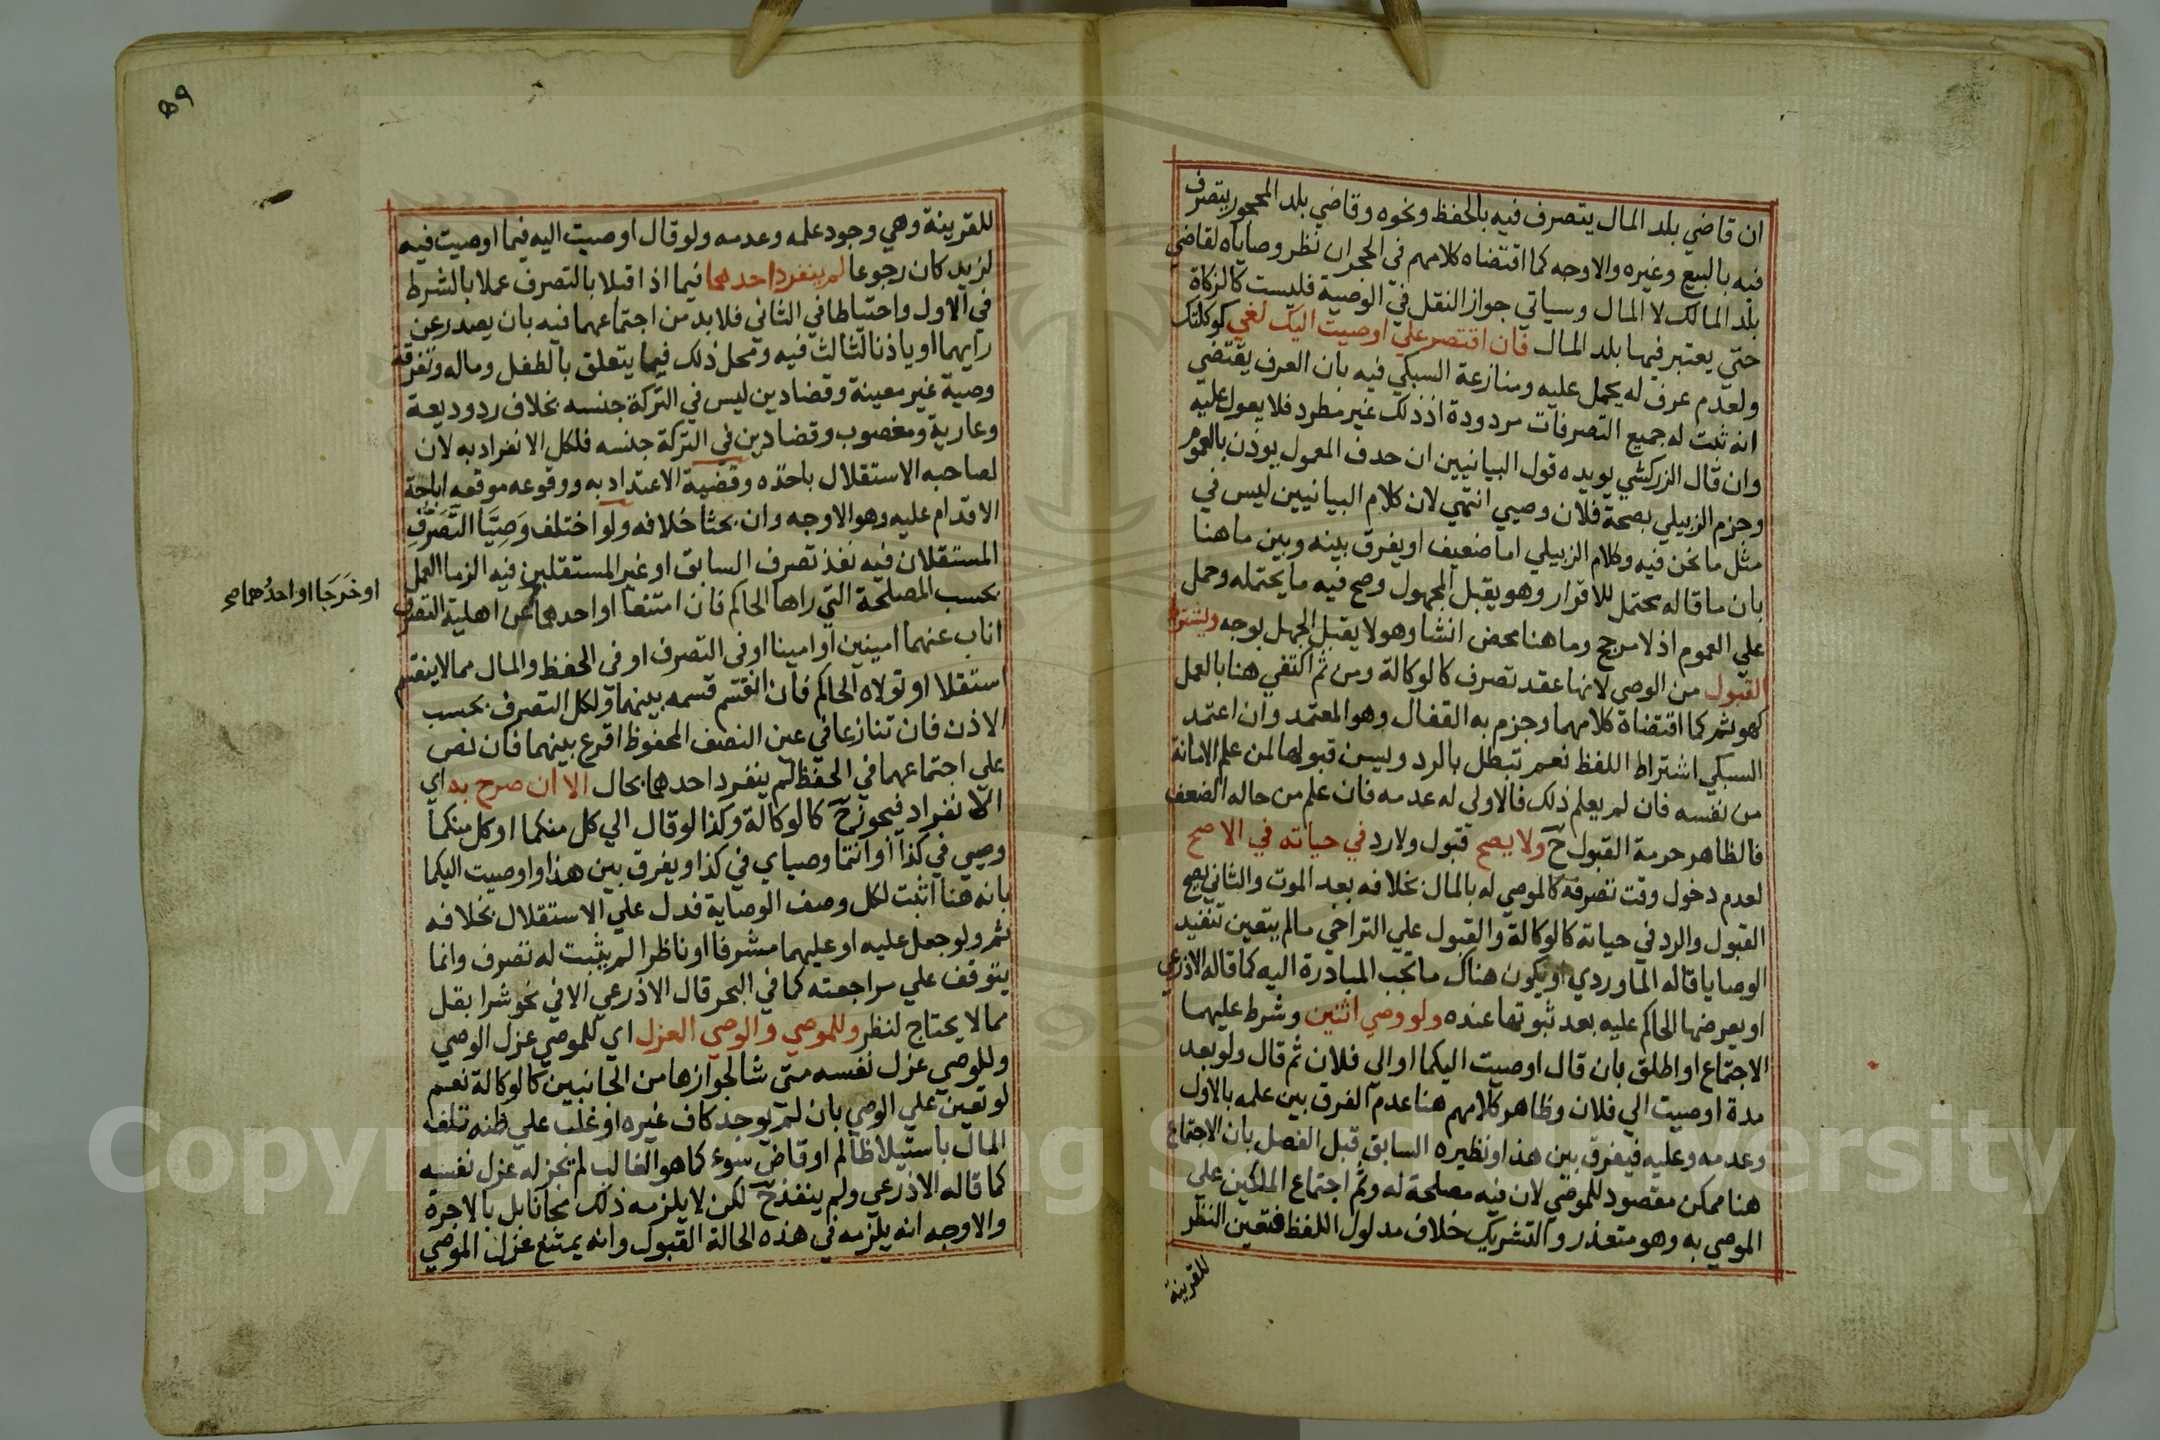 ان قاضي بلد المال يتصرف فيه بالحفظ ونحوه وقاضي بلد المحجور يتصرف
فيه بالبيع وغيره والاوجه كما اقتضاه كلامهم في الحجر ان نظر وصاياه لقاضي
بلد المالك لا المال وسياتي جواز النقل في الوصية فليست كالزكاة
حتي يعتبر فيها بلد المال فان اقتصر علي اوصيت اليك لغي كوكلتك
ولعدم عرف له يحمل عليه ومنازعة السبكي فيه بان العرف يقتضي
انه ثبت له جميع التصرفات مردودة اذ ذلك غير مطرد فلا يعول عليه
وان قال الزركشي يويده قول البيانيين ان حدف المعمول يوذن بالعموم
وجزم الزبيلي بصحة فلان وصيي انتهي لان كلام البيانيين ليس في
مثل ما نحن فيه وكلام الزبيلي اما ضعيف او يفرق بينه وبين ما هنا
بان ما قاله يحتمل للاقرار وهو يقبل المجهول وصح فيه ما يحتمله وحمل
علي العموم اذ لا مرجح وما هنا محض انشا وهو لا يقبل الجهل بوجه ويشترط
القبول من الوصي لانها عقد تصرف كالوكالة ومن ثم اكتفي هنا بالعمل
كهو ثم كما اقتضاة كلامهما وجزم به القفال وهو المعتمد وان اعتمد
السبكي اشتراط اللفظ نعم تبطل بالرد ويسن قبولها لمن علم الامانة
من نفسه فان لم يعلم ذلك فالاولي له عدمه فان علم من حاله الضعف
فالظاهر حرمة القبول ح ولا يصح قبول ولا رد في حياته في الاصح
لعدم دخول وقت تصرفه كالموصي له بالمال بخلافه بعد الموت والثاني يصح
القبول والرد في حياته كالوكالة والقبول علي التراخي مالم يتعين تنفيد
الوصايا قاله الماوردي او يكون هناك ما تجب المبادرة اليه كما قاله الاذرعي
او يعرضها الحاكم عليه بعد ثبوتها عنده ولو وصي اثنين وشرط عليهما
الاجتماع او اطلق بان قال اوصيت اليكما او الي فلان ثم قال ولو بعد
مدة اوصيت الي فلان وظاهر كلامهم هنا عدم الفرق بين علمه بالاول
وعدمه وعليه فيفرق بين هذا ونظيره السابق قبل الفصل بان الاجتماع
هنا ممكن مقصود للموصي لان فيه مصلحة له وثم اجتماع الملكين علي
الموصي به وهو متعذر والتشريك خلاف مدلول اللفظ فتعين النظر
للقرينة
٥٩
للقرينة وهي وجود علمه وعدمه ولو قال اوصيت اليه فيما اوصيت فيه
لزيد كان رجوعا لم ينفرد احدهما فيما اذا قبلا بالتصرف عملا بالشرط
في الاول واحتياطا في الثاني فلا بد من اجتماعهما فيه بان يصدر عن
رايهما او ياذنا لثالث فيه ومحل ذلك فيما يتعلق بالطفل وماله وتفرقة
وصية غير معينة وقضا دين ليس في التركة جنسه بخلاف رد وديعة
وعارية ومغصوب وقضا دين في التركة جنسه فلكل الانفراد به لان
لصاحبه الاستقلال باخذه وقضية الاعتداد به ووقوعه موقعه اباحة
الاقدام عليه وهو الاوجه وان بحثا خلافه ولو اختلف وَصِيَّا التَّصَرُّفِ
المستقلان فيه نفذ تصرف السابق او غير المستقلين فيه الزما العمل
بحسب المصلحة التي راها الحاكم فان امتنعا او احدهما عن اهلية التصرف
او خَرَجَا او احدُهما صح
اناب عنهما امينين او امينا او في التصرف او في الحفظ والمال مما لا ينقسم
استقلا او تولاه الحاكم فان انقسم قسمه بينهما ولكل التصرف بحسب
الاذن فان تنازعا في عين النصف المحفوظ اقرع بينهما فان نص
علي اجتماعهما في الحفظ لم ينفرد احدهما بحال الا ان صرح به اي
الانفراد فيجوز ح كالوكالة وكذا لو قال الي كل منكما او كل منكما
وصيي في كذا او انتما وصياي في كذا ويفرق بين هذا واوصيت اليكما
بانه هنا اثبت لكل وصف الوصاية فدل علي الاستقلال بخلافه
ثم ولو جعل عليه او عليهما مشرفا او ناظرا لم يثبت له تصرف وانما
يتوقف علي مراجعته كما في البحر قال الاذرعي الا في نحو شرا بقل
مما لا يحتاج لنظر وللموصي والوصي العزل اي للموصي عزل الوصي
وللوصي عزل نفسه متي شا لجوازها من الجانبين كالوكالة نعم
لو تعين علي الوصي بان لم يوجد كاف غيره او غلب علي ظنه تلف
المال باستيلا ظالم او قاض سوء كما هو الغالب لم يجز له عزل نفسه
كما قاله الاذرعي ولم ينفذ ح لكن لا يلزمه ذلك مجانا بل بالاجرة
والاوجه انه يلزمه في هذه الحالة القبول وانه يمتنع عزل الموصي
Copyright © King Saud University